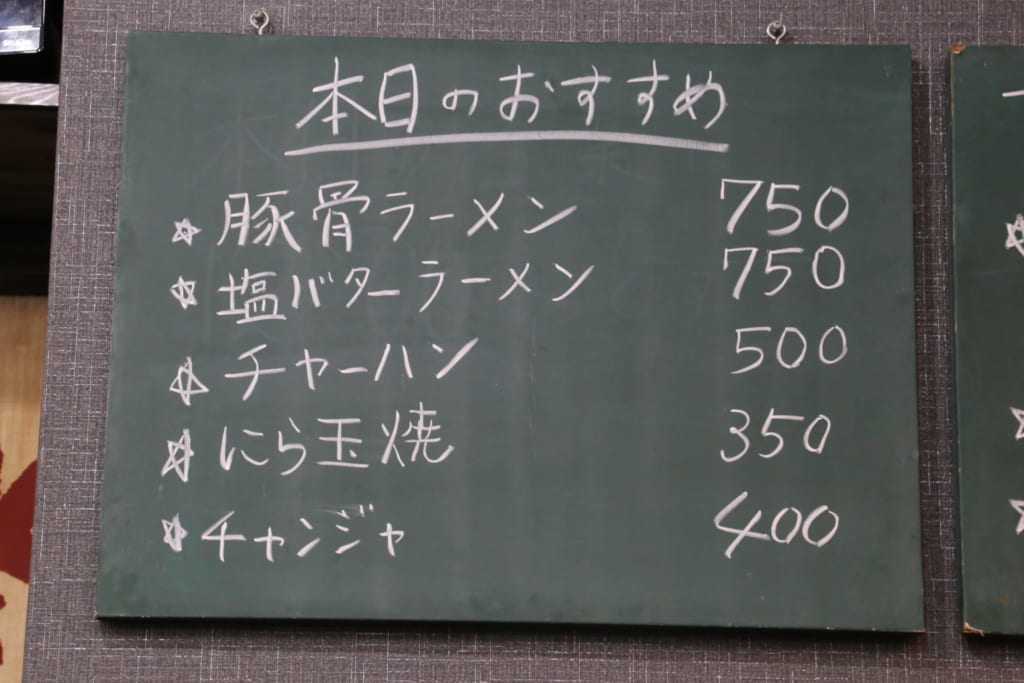 本日のおすすめ
☆ 豚骨ラーメン 750
☆ 塩バターラーメン 750
☆ チャーハン 500
☆ にら玉焼 350
☆ チャンジャ 400